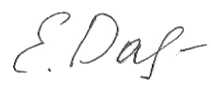 E. Das